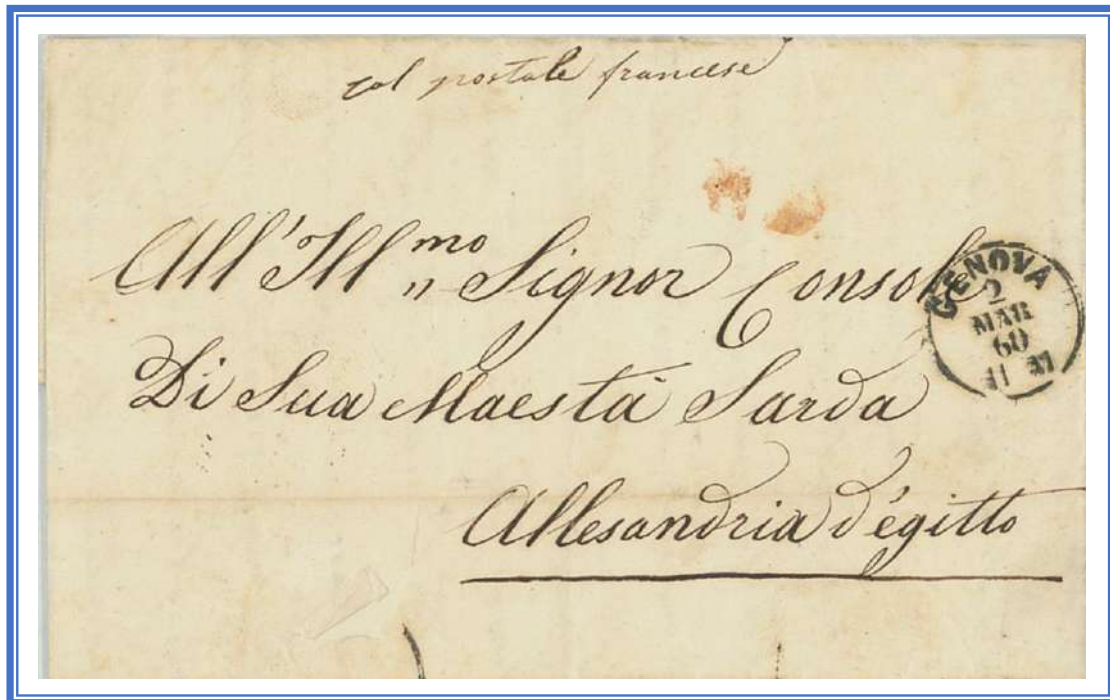 col postale francese
All'Ill.mo Signor Console
Di Sua Maestà Sarda
Allesandria d'égitto
GENOVA
2
MAR
60
11